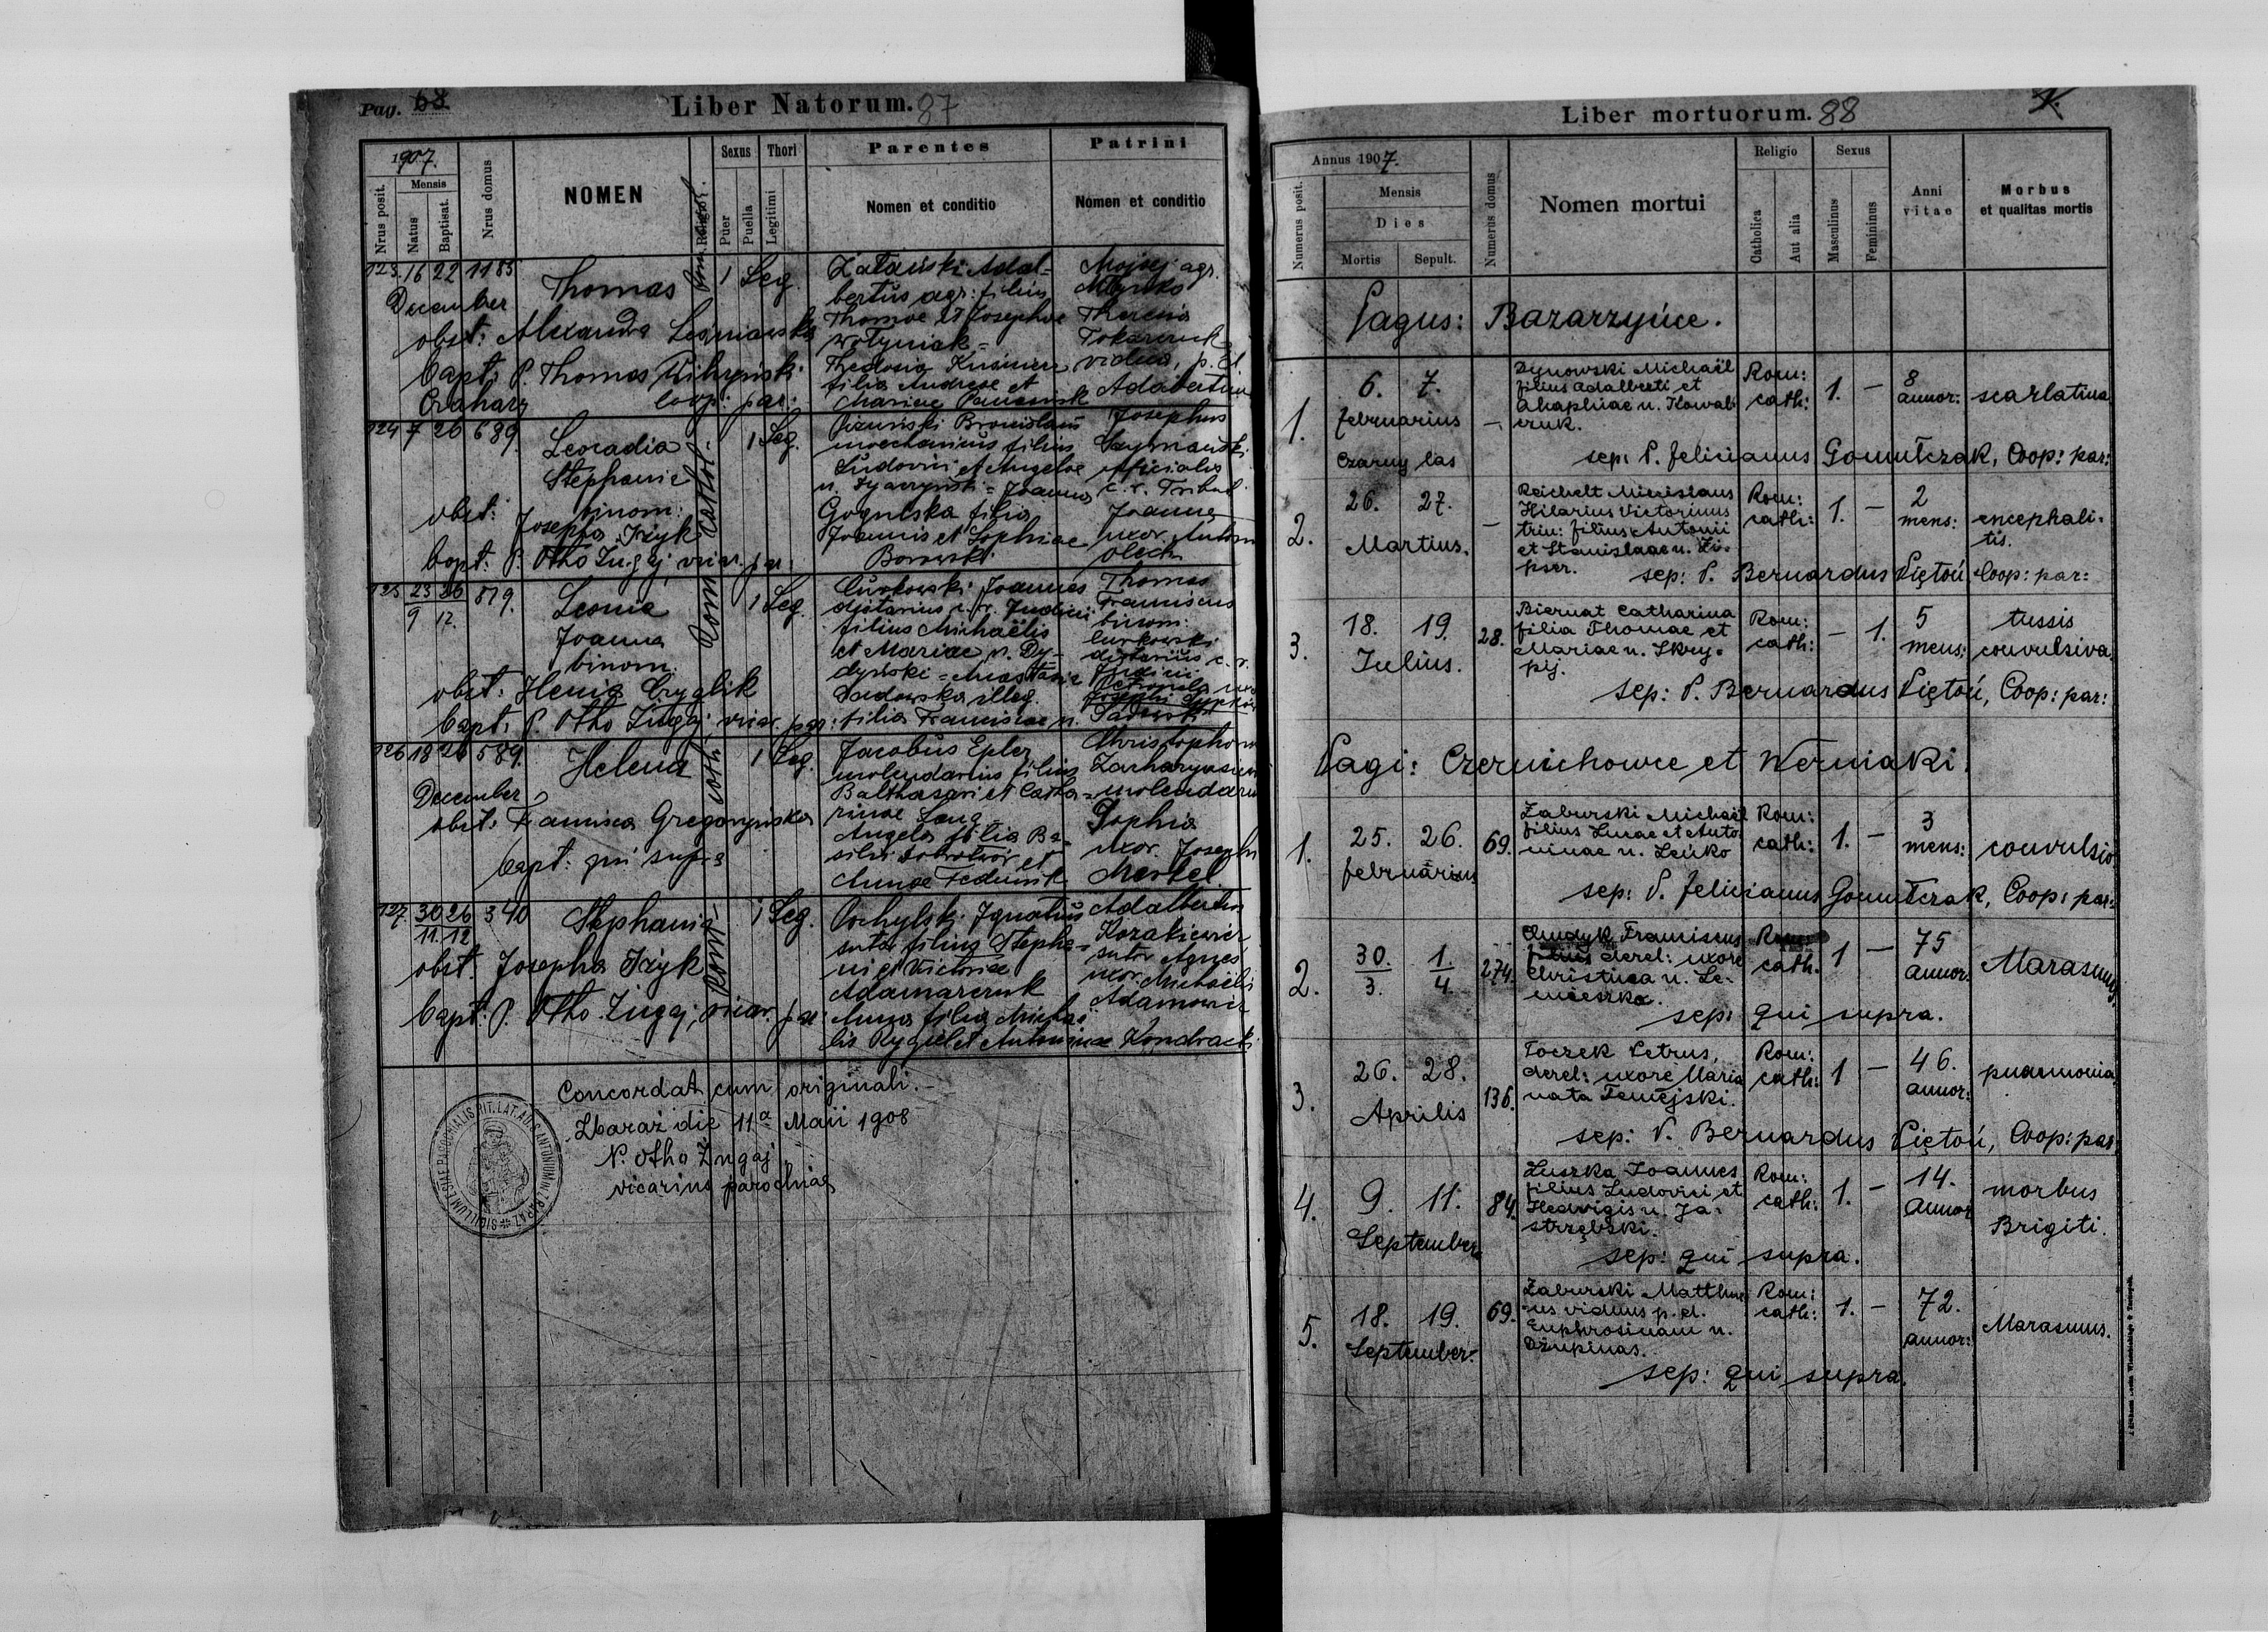 Pag. 68
Liber Natorum. 87
1907.
Nrus posit.
Mensis
Natus
Baptisat.
Nrus domus
NOMEN
Religio
Sexus
Puer
Puella
Thori
Legitimi
Parentes
Nomen et conditio
Patrini
Nomen et conditio
123. 16 22 1185
December
Thomas
1 Leg.
obst: Alexandra
bapt: P. Thomas
coop: par:
bertus agr: filius
Thomae et Josephae
Wołyniak =
Theodosia
filia Andreae et
Mariae
Mojsej agr.
Theresia
vidua, p. d.
124 7 26 689.
Leocadia
Stephania
binom:
1 Leg.
obst: Josepha Jżyk
bapt: P. Otho Żugaj, vicar. par:
Rom. cathol.
Bronislaus
mechanicus filius
Ludovici et Angelae
Joanna
filia
Joannis et Sophiae
Borowski
Josephus
officialis
c. r. Tribut.
Joanna
uxor Antoni
Olech
125 23 26 819.
9 12.
Leonia
Joanna
binom.
1 Leg.
obst: Xenia Cryglik
bapt: P. Otho Żugaj, vicar. par:
Curkowski Joannes
djetarius c. r. Judicii
filius Michaëlis
et Mariae n. Dy-
dyński = Anastasia
Sadowska illeg.
filia Franciscae n.
Thomas
Franciscus
binom:
Curkowski
djetarius c. r.
Judicii
Petronela
Josephi
Sadowski
126 18 26 589.
December
Helena
1 Leg.
obst: Francisca Gregoryńska
bapt: qui supra
Jacobus Epler
molendarius filius
Balthasari et Catha-
rinae Lang =
Angela filia Ba-
silii et
Annae Fedunik
molendarius
Sophia
uxor Josephi
Merkel
127. 30 26 340
11. 12
Stephania
1 Leg.
obst. Josepha Jżyk
bapt: P. Otho Żugaj, vicar. par:
Rom.
Pochylski Ignatius
sutor filius Stepha-
ni et Victoriae
Adamarczuk
Anna filia Michaë
lis Rygiel et Antoninae Kondracki
Adalbertus
Kozakiewicz
sutor Agnes
uxor Michaëlis
Adamowicz
Concordat cum originali. -
Zbaraż die 11a Maii 1908
P. Otho Żugaj
vicarius parochiae
Liber mortuorum. 88
1.
Annus 1907.
Numerus posit.
Mensis
Dies
Mortis
Sepult.
Numerus domus
Nomen mortui
Religio
Catholica
Aut alia
Sexus
Masculinus
Femininus
Anni
vitae
Morbus
et qualitas mortis
Pagus: Bazarzyńce.
1. 6. 7. -
Februarius
Czarny las
Dynowski Michaël
filius Adalberti et
Ahaphiae n. Kowal-
czuk.
Rom:
cath:
1. -
8
annor:
scarlatina
sep: P. Felicianus Gomułczak, Coop: par:
2. 26. 27. -
Martius.
Reichelt Miecislaus
Hilarius Victorinus
trin: filius Antonii
et Stanislaae n. Li-
pser.
Rom:
cath:
1. -
2
mens:
encephali-
tis.
sep: P. Bernardus Piętoń, Coop: par:
3. 18. 19. 28.
Julius.
Biernat Catharina
filia Thomae et
Mariae n. Skry-
pij.
Rom:
cath:
- 1.
5
mens:
tussis
convulsiva.
sep: P. Bernardus Piętoń, Coop: par:
Pagi: Czernichowce et Werniaki.
1. 25. 26. 69.
Februarius
Zaburski Michaël
filius Lucae et Anto-
ninae n. Leńko
Rom:
cath:
1. -
3
mens:
convulsio
sep: P. Felicianus Gomułczak, Coop: par:
2. 30. 1. 274.
3. 4.
Chudyk Franciscus
derel: uxore
Christina n. Le-
mieszka.
Rom:
cath.
1 -
75
annor.
Marasmus
sep: qui supra.
3. 26. 28. 136.
Aprilis
Toczek Petrus,
derel: uxore Maria
nata
Rom:
cath:
1 -
46.
annor:
pneumonia
sep: P. Bernardus Piętoń, Coop: par:
4. 9. 11. 84.
September
Luszka Joannes
filius Ludovici et
Hedvigis n. Ja-
strzębski.
Rom:
cath:
1. -
14.
annor
morbus
Brigiti.
sep: qui supra.
5. 18. 19. 69.
September.
Zaburski Matthae-
us viduus p. d.
Euphrosinam n.
Dżupinas.
Rom:
cath:
1. -
72.
annor:
Marasmus.
sep: qui supra.